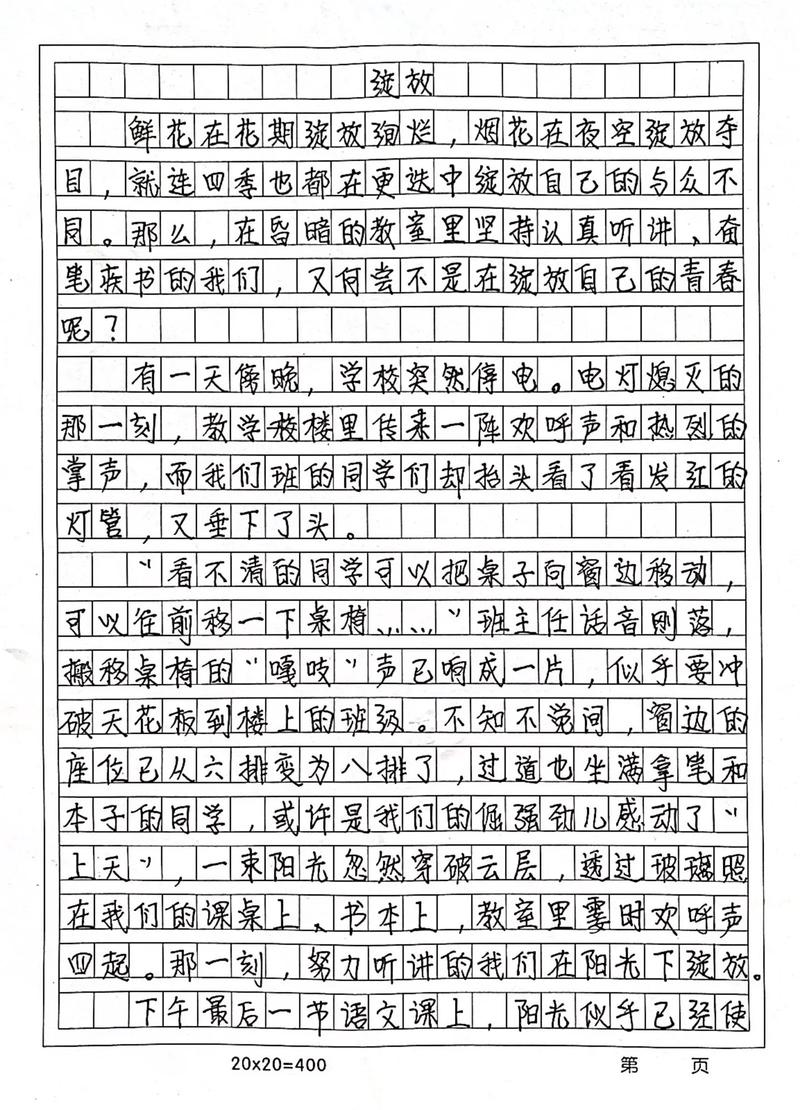 绽放
鲜花在花期绽放绚烂，烟花在夜空绽放夺
目，就连四季也都在更迭中绽放自己的与众不
同。那么，在昏暗的教室里坚持认真听讲、奋
笔疾书的我们，又何尝不是在绽放自己的青春
呢？
有一天傍晚，学校突然停电。电灯熄灭的
那一刻，教学楼里传来一阵欢呼声和热烈的
掌声，而我们班的同学们却抬头看了看发红的
灯管，又垂下了头。
“看不清的同学可以把桌子向窗边移动，
可以往前移一下桌椅……”班主任话音刚落，
搬移桌椅的“嘎吱”声已响成一片，似乎要冲
破天花板到楼上的班级。不知不觉间，窗边的
座位已从六排变为八排了，过道也坐满拿笔和
本子的同学，或许是我们的倔强劲儿感动了“
上天”，一束阳光忽然穿破云层，透过玻璃照
在我们的课桌上、书本上，教室里霎时欢呼声
四起。那一刻，努力听讲的我们在阳光下绽放。
下午最后一节语文课上，阳光似乎已经使
20×20=400
第 页